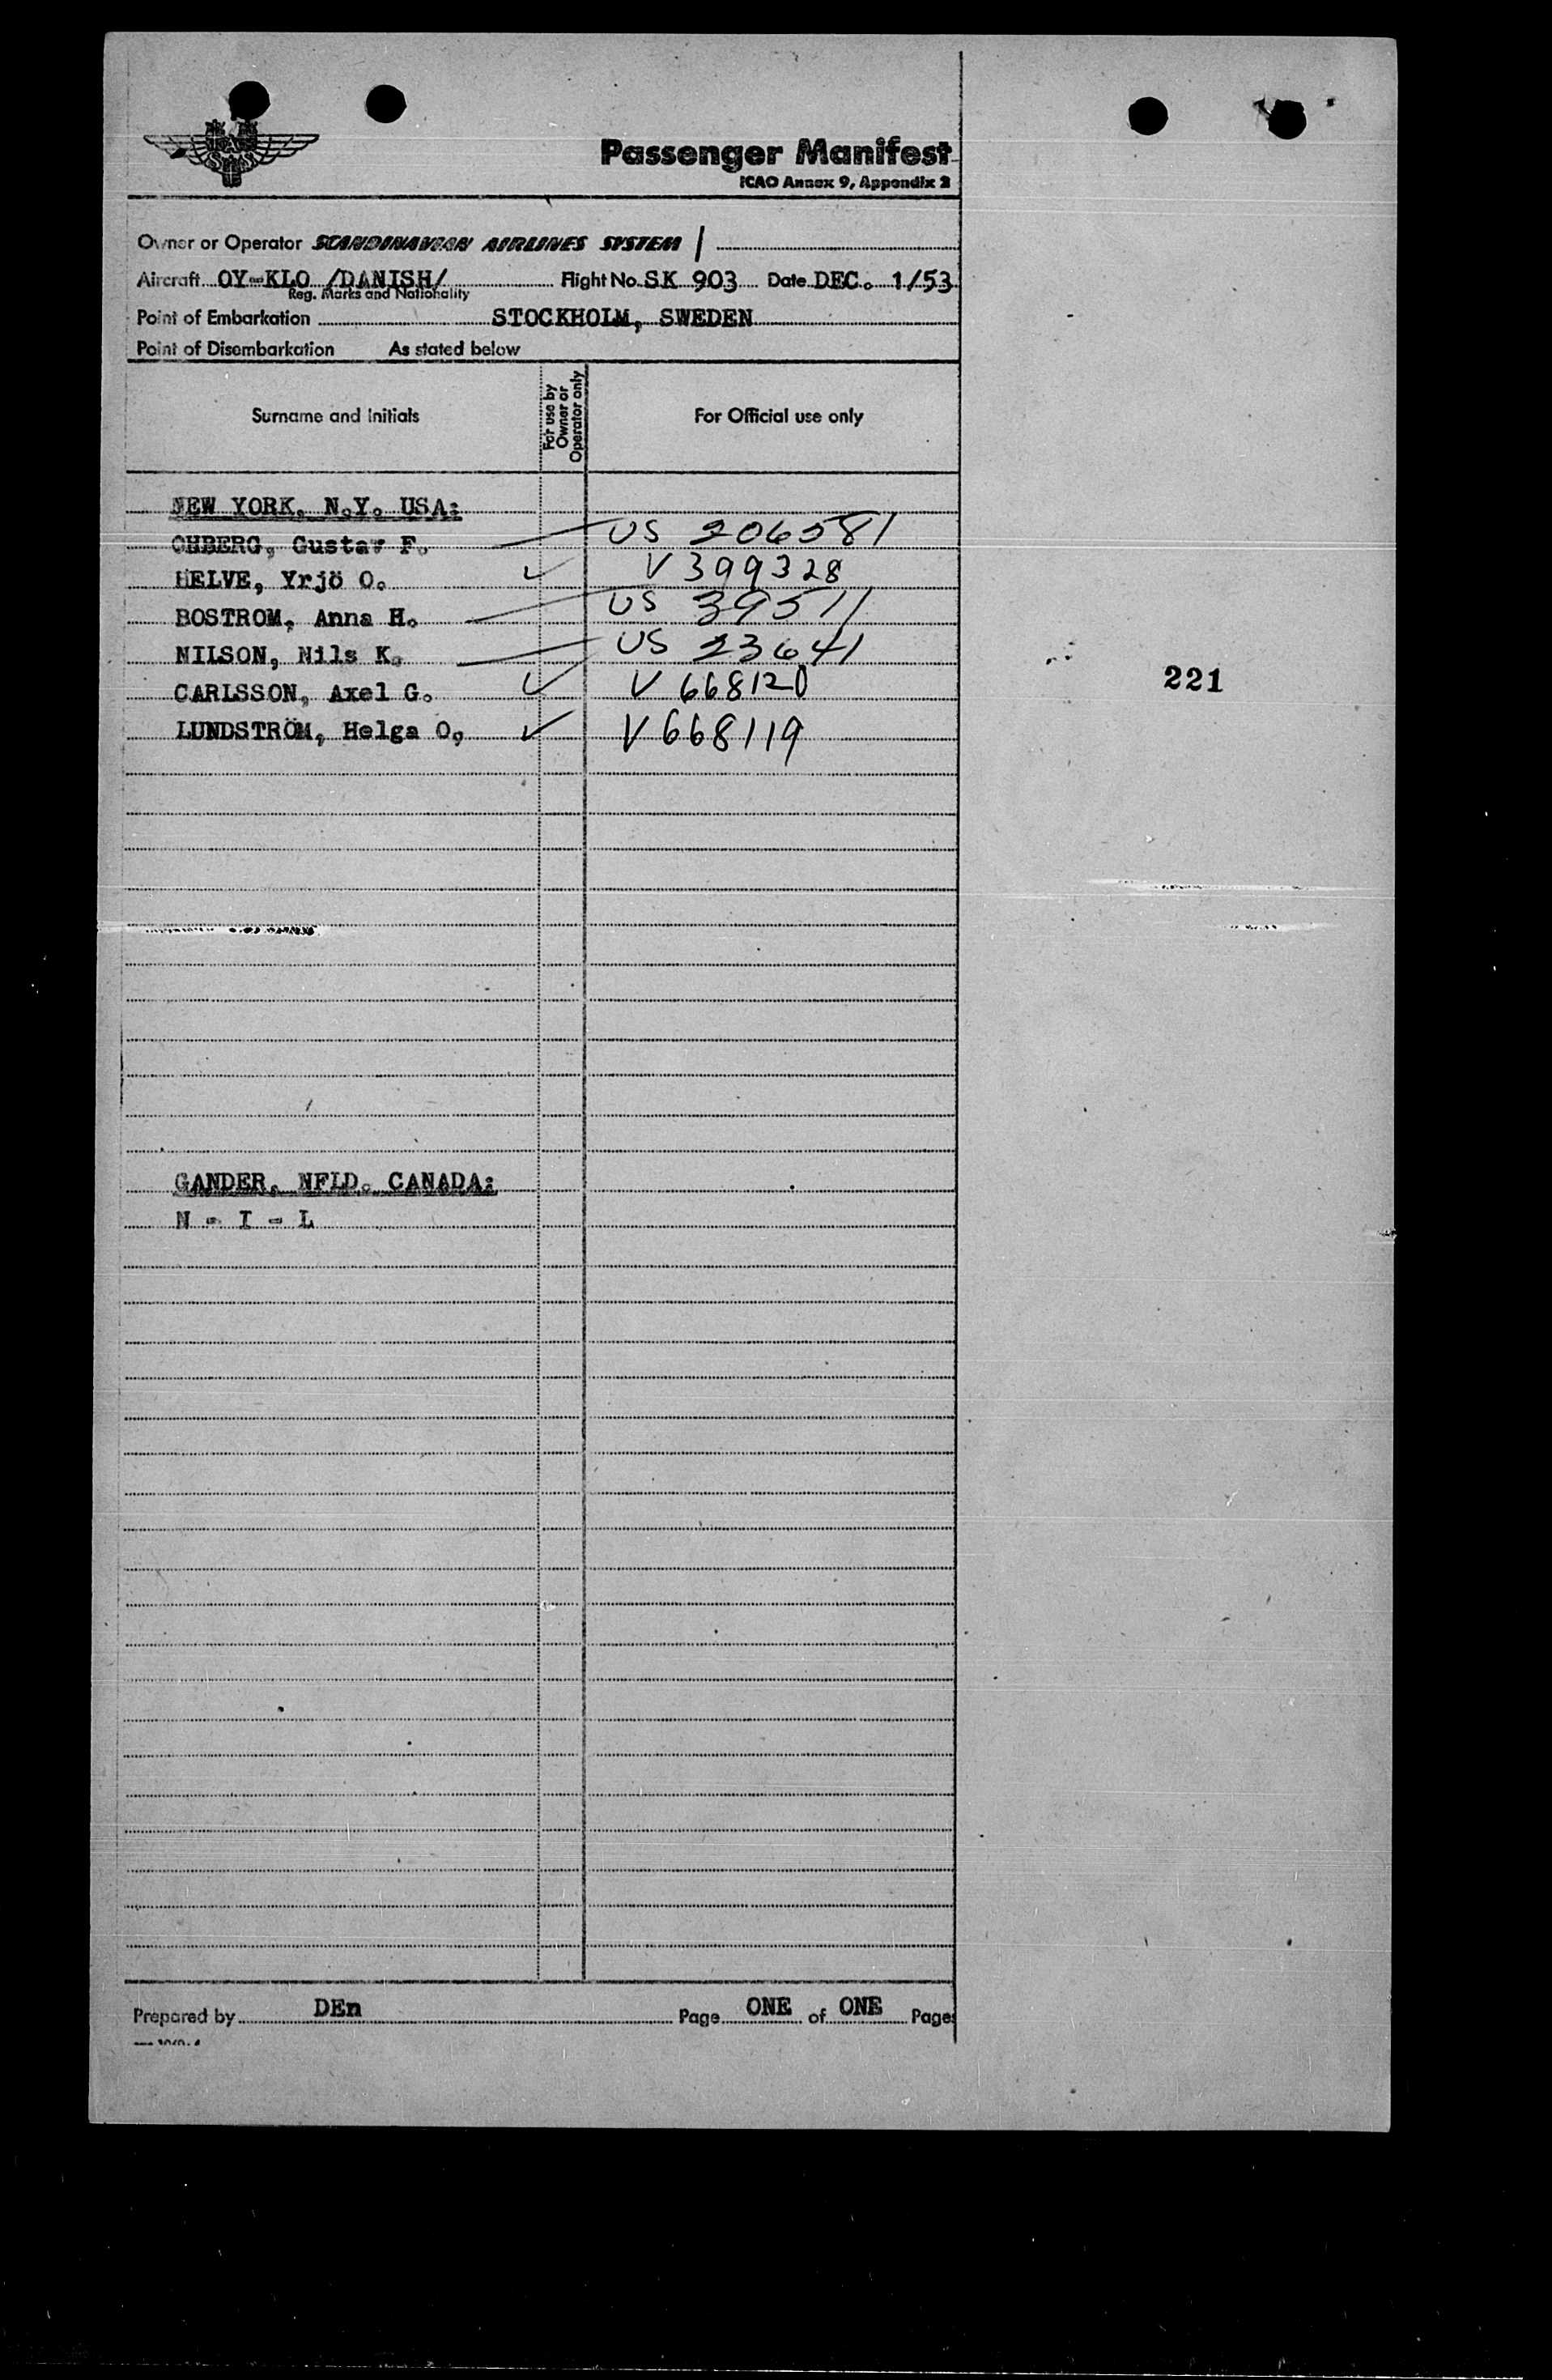 SAS
Passenger Manifest
ICAO Annex 9, Appendix 2
Owner or Operator SCANDINAVIAN AIRLINES SYSTEM /
Aircraft OY-KLO /DANISH/ Flight No. SK 903 Date DEC. 1/53
Reg. Marks and Nationality
Point of Embarkation STOCKHOLM, SWEDEN
Point of Disembarkation As stated below
Surname and Initials For use by Owner or Operator only For Official use only
NEW YORK, N.Y. USA:
OHBERG, Gustav F. US 206581
HELVE, Yrjö O. ✓ V 399328
BOSTROM, Anna H. US 39511
NILSON, Nils K. US 23641
CARLSSON, Axel G. ✓ V 668120
LUNDSTRÖM, Helga O, ✓ V 668119
221
GANDER, NFLD. CANADA:
N - I - L
Prepared by DEn Page ONE of ONE Pages